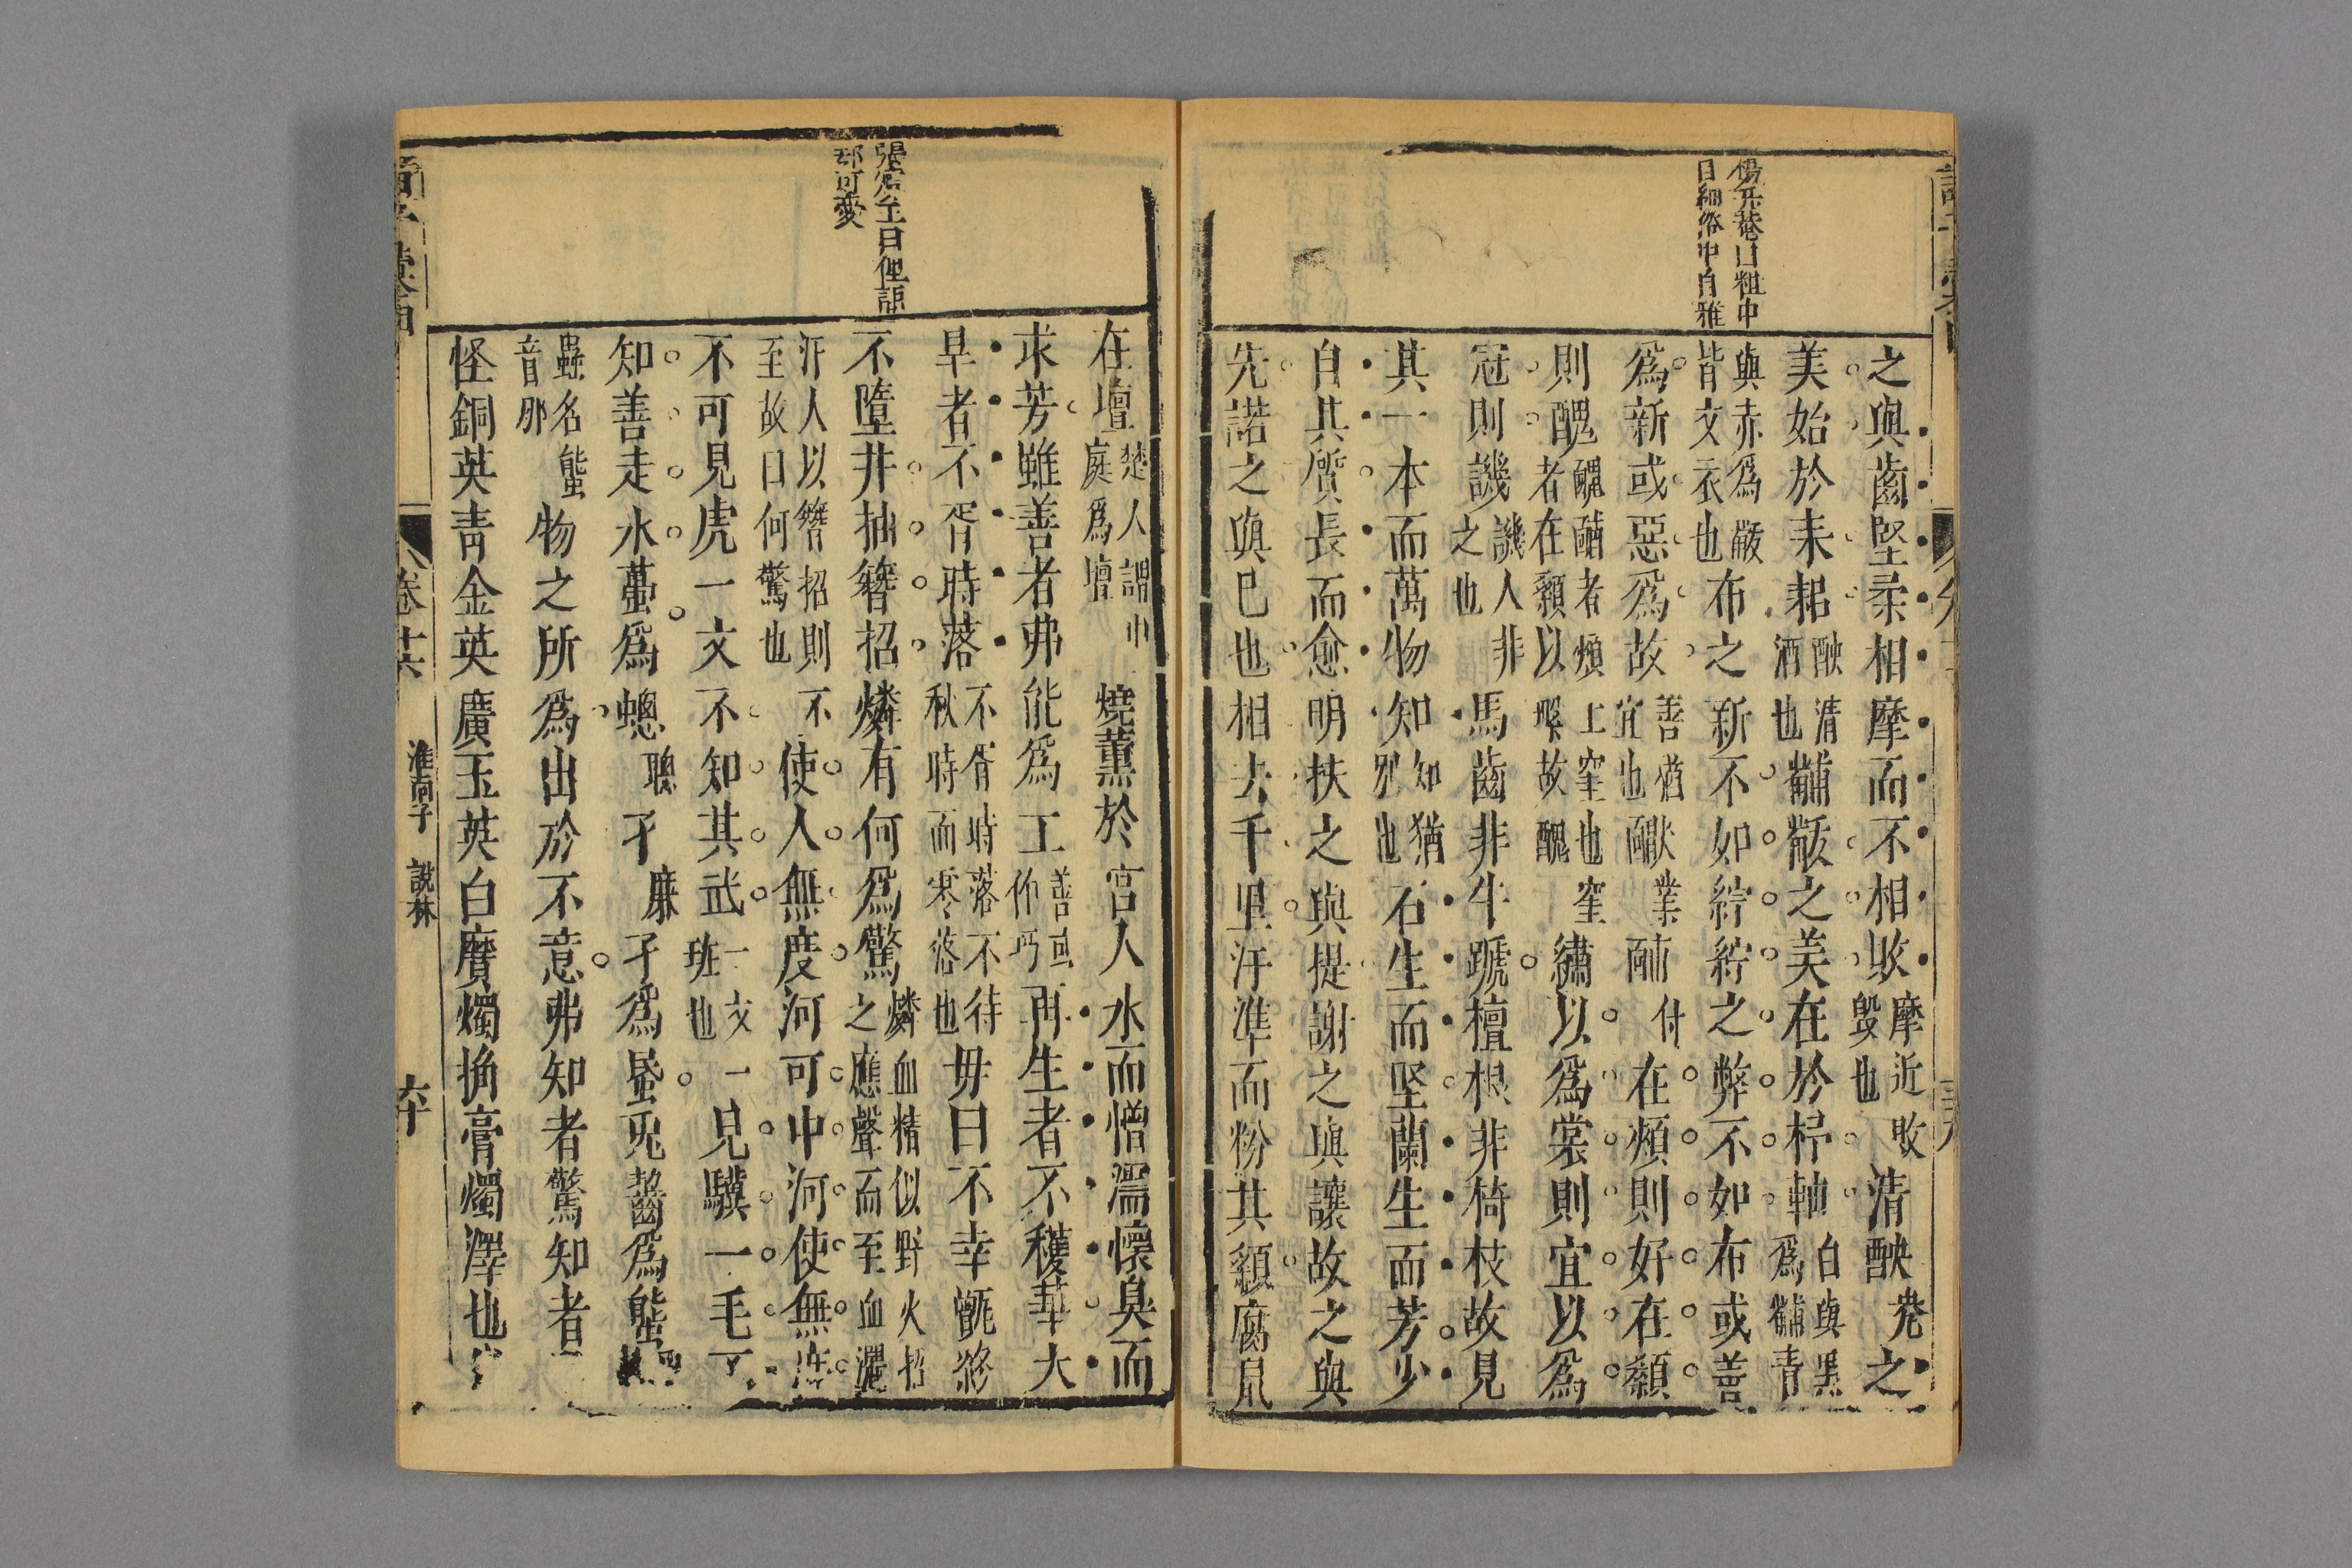 楊升菴曰粗中
自細俗中自雅
之與齒堅柔相摩而不相敗摩近敗
毀也清醠癸之
美始於耒耜醠清
酒也黼黻之美在於杼軸白與黑
為黼青
與赤為黻
皆文衣也布之新不如紵紵之弊不如布或善
為新或惡為故善猶
宜也𪙊業𪘨付在頰則好在顙
則醜𪙊𪘨者頰上窐也窐
者在顙以槃故醜繡以為裳則宜以為
冠則譏譏人非
之也馬齒非牛蹏檀根非椅枝故見
其一本而萬物知知猶
別也石生而堅蘭生而芳少
自其質長而愈明扶之與提謝之與讓故之與
先諾之與已也相去千里汙準而粉其顙腐鼠
張賓王曰俚語
却可愛
在壇楚人謂中
庭為壇燒薰於宮人水而憎濡懷臭而
求芳雖善者弗能為工善或
作巧再生者不穫華大
早者不胥時落不胥時落不待
秋時而零落也毋曰不幸甑終
不墮井抽簪招燐有何為驚燐血精似野火招
之應聲而至血灑
汙人以簪招則不
至故曰何驚也使人無度河可中河使無度
不可見虎一文不知其武一文
班也一見驥一毛不
知善走水蠆為蟌聰孑廉孑為蟁兎齧為螚
蟲名螚
音那物之所為出於不意弗知者驚知者
怪銅英青金英黃玉英白黂燭捔膏燭澤也
卷十六
淮南子 說林
六十